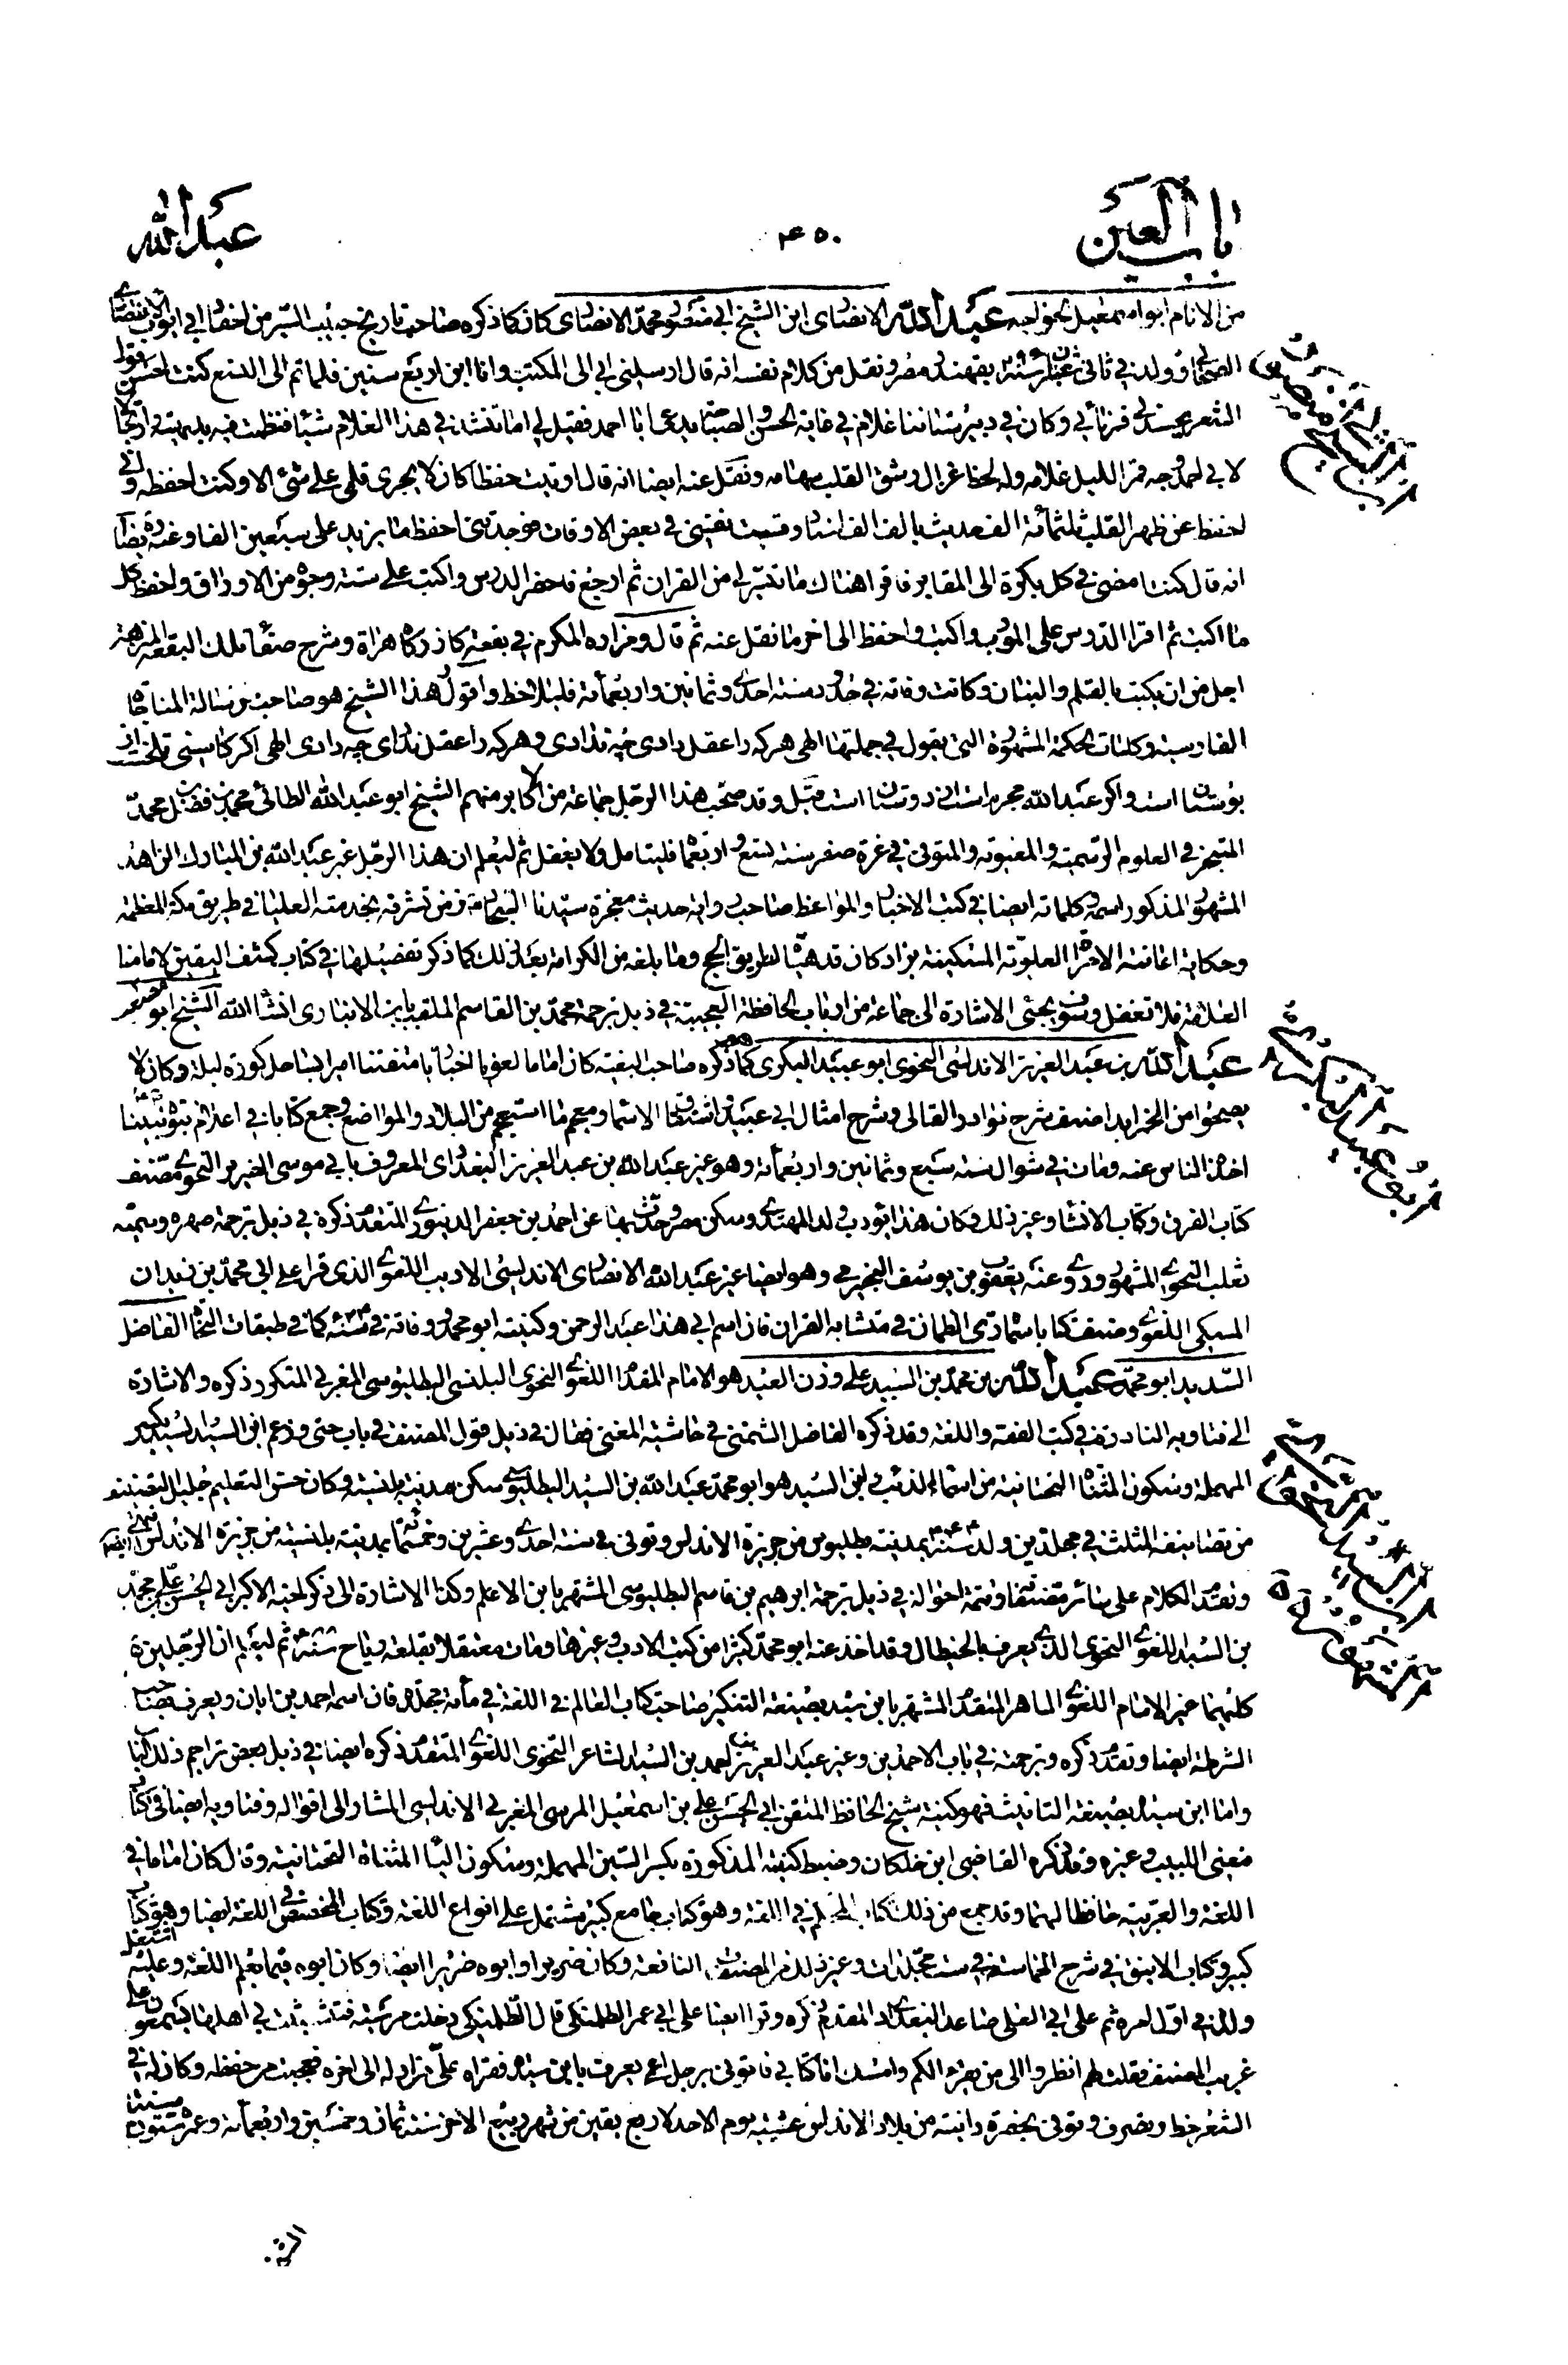 باب العين
۴۵۰
عبد الله
من الانام ابو اسمعيل الخواجه عبد الله الانصاری ابن الشيخ ابي منصور محمد الانصاری كان كما ذكره صاحب تاريخ حبيب السير من احفاد ابي ايوب الانصاری
الصحابي وولد في ثاني شعبان سنة بقهندز مصر ونقل من كلام نفسه انه قال ارسلني ابي الى المكتب وانا ابن اربع سنين فلما تم الى التسع كنت احسن قول
الشعر بحيث يحسدني اقراني وكان في دبيرستاننا غلام في غاية الحسن والصباحة يدعى ابا احمد فقيل لي اما تنشد في هذا الغلام شيئا فنظمت فيه بديهة وارتجالا
لابي احمد وجه قمر الليل غلامه وله لحظ غزال رشق القلب سهامه ونقل عنه ايضا انه قال اوتيت حفظا كان لا يجری قلمي على شئ الا وكنت احفظه واني
احفظ عن ظهر القلب ثلثمائة الف حديث بالف الف اسناد وقست نفسي في بعض الاوقات فوجدتني احفظ ما يزيد على سبعين الفا وعنه ايضا
انه قال كنت امضي في كل بكرة الى المقابر فاقرا هناك ما تيسر لي من القران ثم ارجع فاحضر الدرس واكتب على ستة وجوه من الاوراق واحفظ كل
ما اكتب ثم اقرا الدرس على المؤدب واكتب واحفظ الى اخر ما نقل عنه ثم قال ومزاره المكرم في بقعة كازركاه هراة وشرح صفاء تلك البقعة المنزهة
اجل من ان يكتب بالقلم والبنان وكانت وفاته في حدود سنة احدی وثمانين واربعمائة فليلاحظ واقول هذا الشيخ هو صاحب رسالة المناجاة
الفارسية وكلمات الحكمة المشهورة التي يقول في جملتها الهي هركه را عقل دادی چه ندادی وهركه را عقل ندادی چه دادی الهي اكر كاسني تلخ است از
بوستان است واكر عبد الله مجرم است از دوستان است قبل وقد صحب هذا الرجل جماعة من الاكابر منهم الشيخ ابو عبد الله الطائي محمد بن فضل بن محمد
المتبحر في العلوم الرسمية والمعنوية والمتوفى في غرة صفر سنة تسع واربعمائة فليتامل ولا يغفل ثم ليعلم ان هذا الرجل غير عبد الله بن المبارك الزاهد
المشهور المذكور اسمه وكلماته ايضا في كتب الاخبار والمواعظ صاحب رواية حديث معجزة سيدنا السجاد ومن تشرفه بخدمته العليا في طريق مكة المعظمة
وحكاية اغاثته الامراة العلوية المسكينة بزاد كان قد هيأ لطريق الحج وما بلغه من الكرامة بعد ذلك كما ذكر تفصيلها في كتاب كشف اليقين لامامنا
العلامة فلا تغفل وسوف يجئ الاشارة الى جماعة من ارباب الحافظة العجيبة في ذيل ترجمة محمد بن القاسم الملقب بابن الانباری انشاء الله الشيخ ابو مصعب
عبد الله بن عبد العزيز الاندلسي النحوی ابو عبيد البكری كما ذكره صاحب البغية كان اماما لغويا اخباريا متفننا اميرا بساحل كورة لبلة وكان لا
يصحو من الخمر ابدا صنف شرح نوادر القالي وشرح امثال ابي عبيد واشتقاق الاسماء ومعجم ما استعجم من البلاد والمواضع وجمع كتابا في اعلام نبوة نبينا
اخذ الناس عنه ومات في شوال سنة سبع وثمانين واربعمائة وهو غير عبد الله بن عبد العزيز البغدادی المعروف بابي موسى الضرير النحوی مصنف
كتاب الفرق وكتاب الانشاء وغير ذلك وكان هذا يؤدب ولد المهتدی وسكن مصر وحدث بها عن احمد بن جعفر الدينوری المتقدم ذكره في ذيل ترجمة صهره وسميه
ثعلب النحوی المشهور روی عنه يعقوب بن يوسف النجيرمي وهو ايضا غير عبد الله الانصاری الاندلسي الاديب اللغوی الذی قرا على ابي محمد بن زيدان
المسكي اللغوی وصنف كتابا سماه ری الظمان في متشابه القران فان اسم ابي هذا عبد الرحمن وكنيته ابو محمد ووفاته في سنة كما في طبقات النحاة الفاضل
السديد ابو محمد عبد الله بن محمد بن السيد على وزن العيد هو الامام المقدم اللغوی النحوی البلنسي البطليوسي المغربي المتكرر ذكره والاشارة
الى فتاويه النادرة في كتب الفقه واللغة وقد ذكره الفاضل الشمني في حاشية المغني فقال في ذيل قول المصنف في باب حتى وزعم ابن السيد السيد بكسر
المهملة وسكون المثناة التحتانية من اسماء الذئب وابن السيد هو ابو محمد عبد الله بن السيد البطليوسي سكن مدينة بلنسية وكان حسن التعليم جليل التصنيف
من تصانيفه المثلث في مجلدين ولد سنة ۴۴۴ بمدينة بطليوس من جزيرة الاندلس وتوفى في سنة احدی وعشرين وخمسمائة بمدينة بلنسية من جزيرة الاندلس انتهى ايضا
وتقدم الكلام على سائر مصنفاته وتتمة احواله في ذيل ترجمة ابرهيم بن قاسم البطليوسي المشتهر بابن الاعلم وكذا الاشارة الى ذكر اخيه الاكبر ابي الحسن علي بن محمد
بن السيد اللغوی النحوی الذی يعرف بالخيطال وقد اخذ عنه ابو محمد كثيرا من كتب الادب وغيرها ومات معتقلا بقلعة رباح سنة ثم ليعلم ان الرجلين
كليهما غير الامام اللغوی الماهر المتقدم المشتهر بابن سيد بصيغة التنكير صاحب كتاب العالم في اللغة في مأة مجلد فان اسمه احمد بن ابان ويعرف بصاحب
الشرطة ايضا وتقدم ذكره وترجمته في باب الاحمدين وغير عبد العزيز بن احمد بن السيد الشاعر النحوی اللغوی المتقدم ذكره ايضا في ذيل بعض تراجم ذلك الباب
واما ابن سيده بصيغة التانيث فهو كنية شيخ الحافظ المتقن ابي الحسن علي بن اسمعيل المرسي المغربي الاندلسي المشار الى اقواله وفتاويه ايضا في كتاب
مغني اللبيب وغيره وقد ذكره القاضي ابن خلكان وضبط كنيته المذكورة بكسر السين المهملة وسكون الياء المثناة التحتانية وقال كان اماما في
اللغة والعربية حافظا لهما وقد جمع من ذلك كتاب المحكم في اللغة وهو كتاب جامع كبير مشتمل على انواع اللغة وكتاب المخصص في اللغة ايضا وهو كتاب
كبير وكتاب الانيق في شرح الحماسة في ست مجلدات وغير ذلك من المصنفات النافعة وكان ضريرا وابوه ضريرا ايضا وكان ابوه قيما بعلم اللغة وعليه اشتغل
ولده في اول امره ثم على ابي العلى صاعد البغدادی المقدم ذكره وقرا ايضا على ابي عمر الطلمنكي قال الطلمنكي دخلت مرسية فتشبث بي اهلها يسمعون علي
غريب المصنف فقلت لهم انظروا الى من يقرء لكم وامسك انا كتابي فاتوني برجل اعمى يعرف بابن سيده فقراه علي من اوله الى اخره فعجبت من حفظه وكان له في
الشعر حظ وتصرف وتوفى بحضرة دانية من بلاد الاندلس عشية يوم الاحد لاربع بقين من شهر ربيع الاخر سنة ثمان وخمسين واربعمائة وعمره ستون سنة